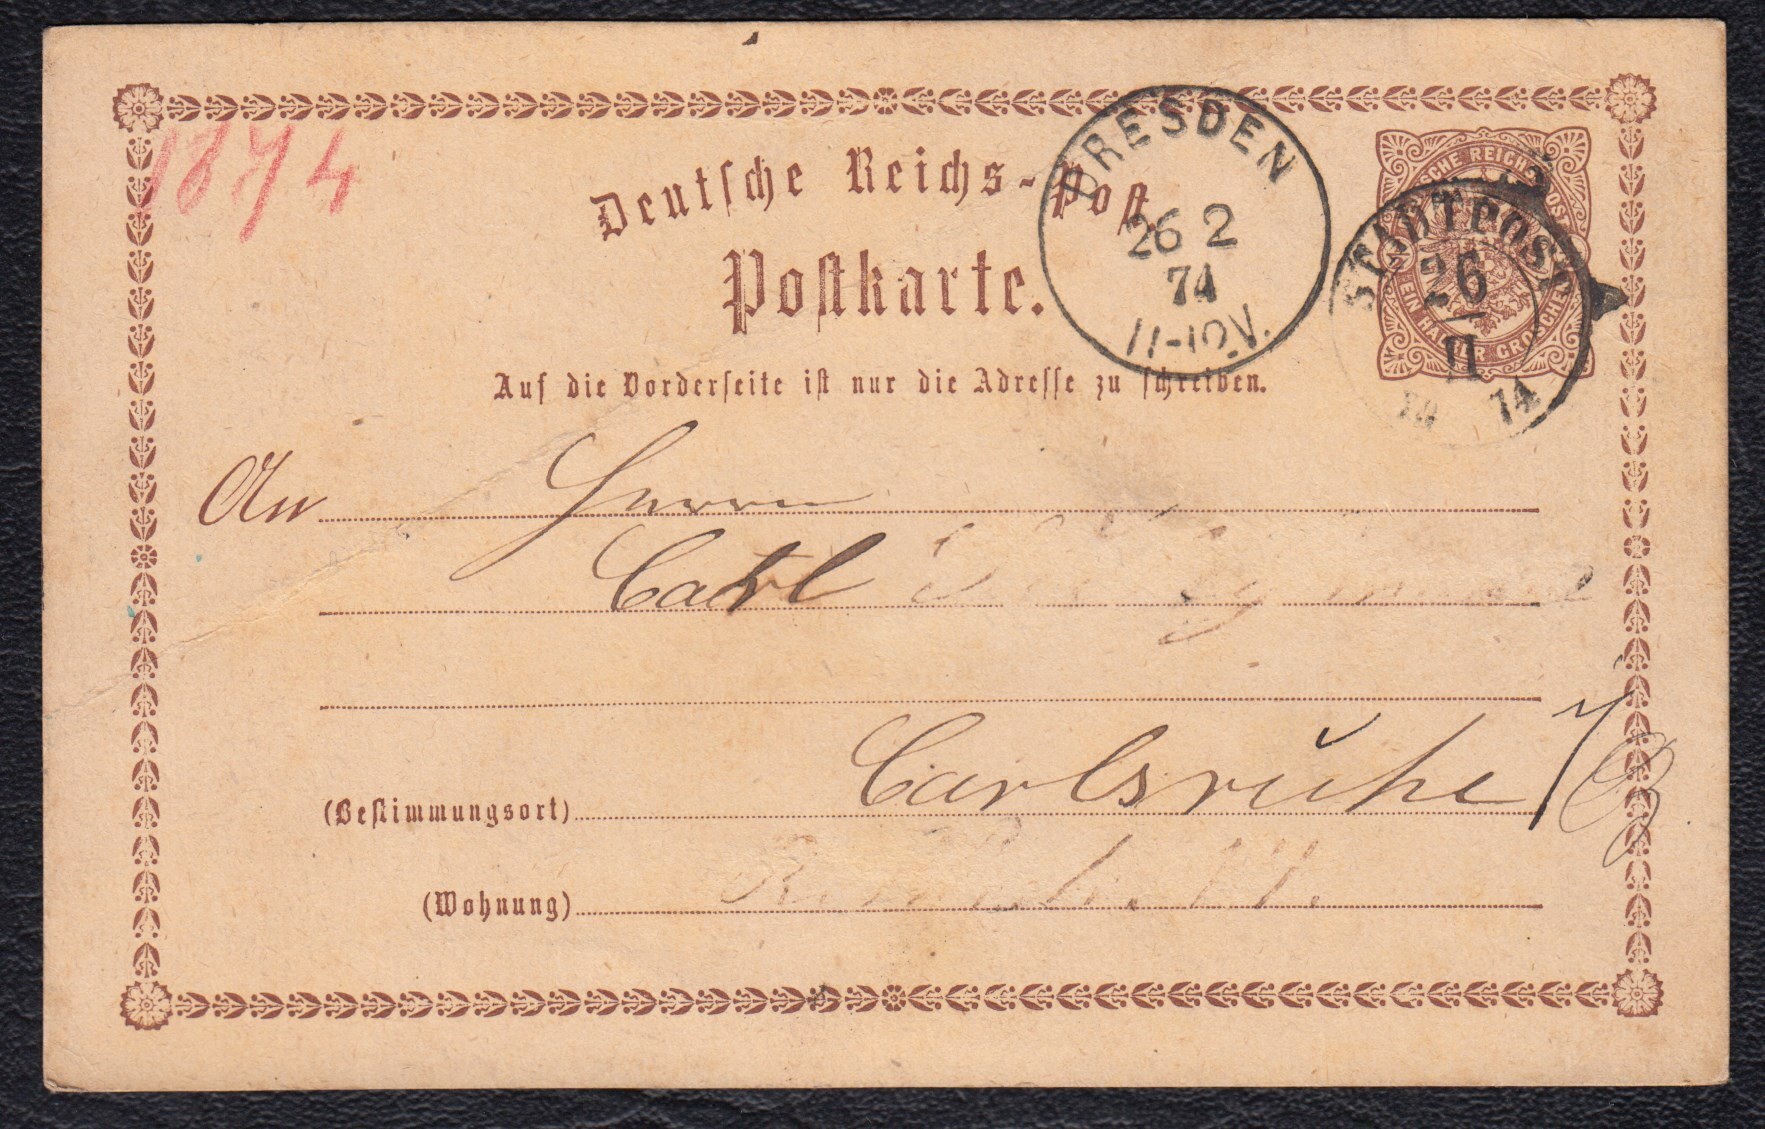 1874
Deutsche Reichs-Post.
Postkarte.
Auf die Vorderseite ist nur die Adresse zu schreiben.
DRESDEN
26 2
74
11-12.V.
DEUTSCHE REICHSPOST
EIN HALBER GROSCHEN
STADTPOST
26
II
74
An Herrn
Carl
(Bestimmungsort) Carlsruhe / B
(Wohnung)